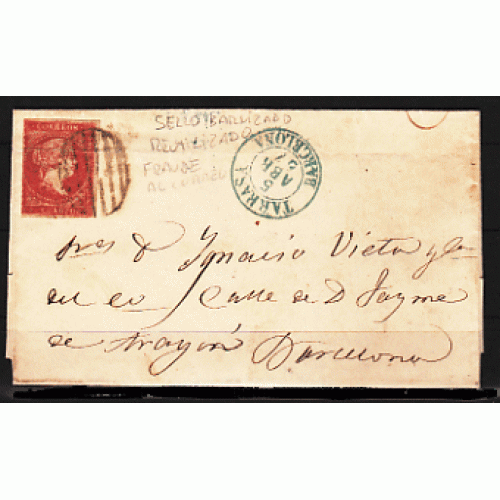 CORREOS
SELLO BARLIZADO
REUTILIZADO
FRAUDE
AL CORREO
TARRASA
5
ABR
57
BARCELONA
Sres D. Ignacio Vieta y
Calle de D. Jayme
de Aragón Barcelona